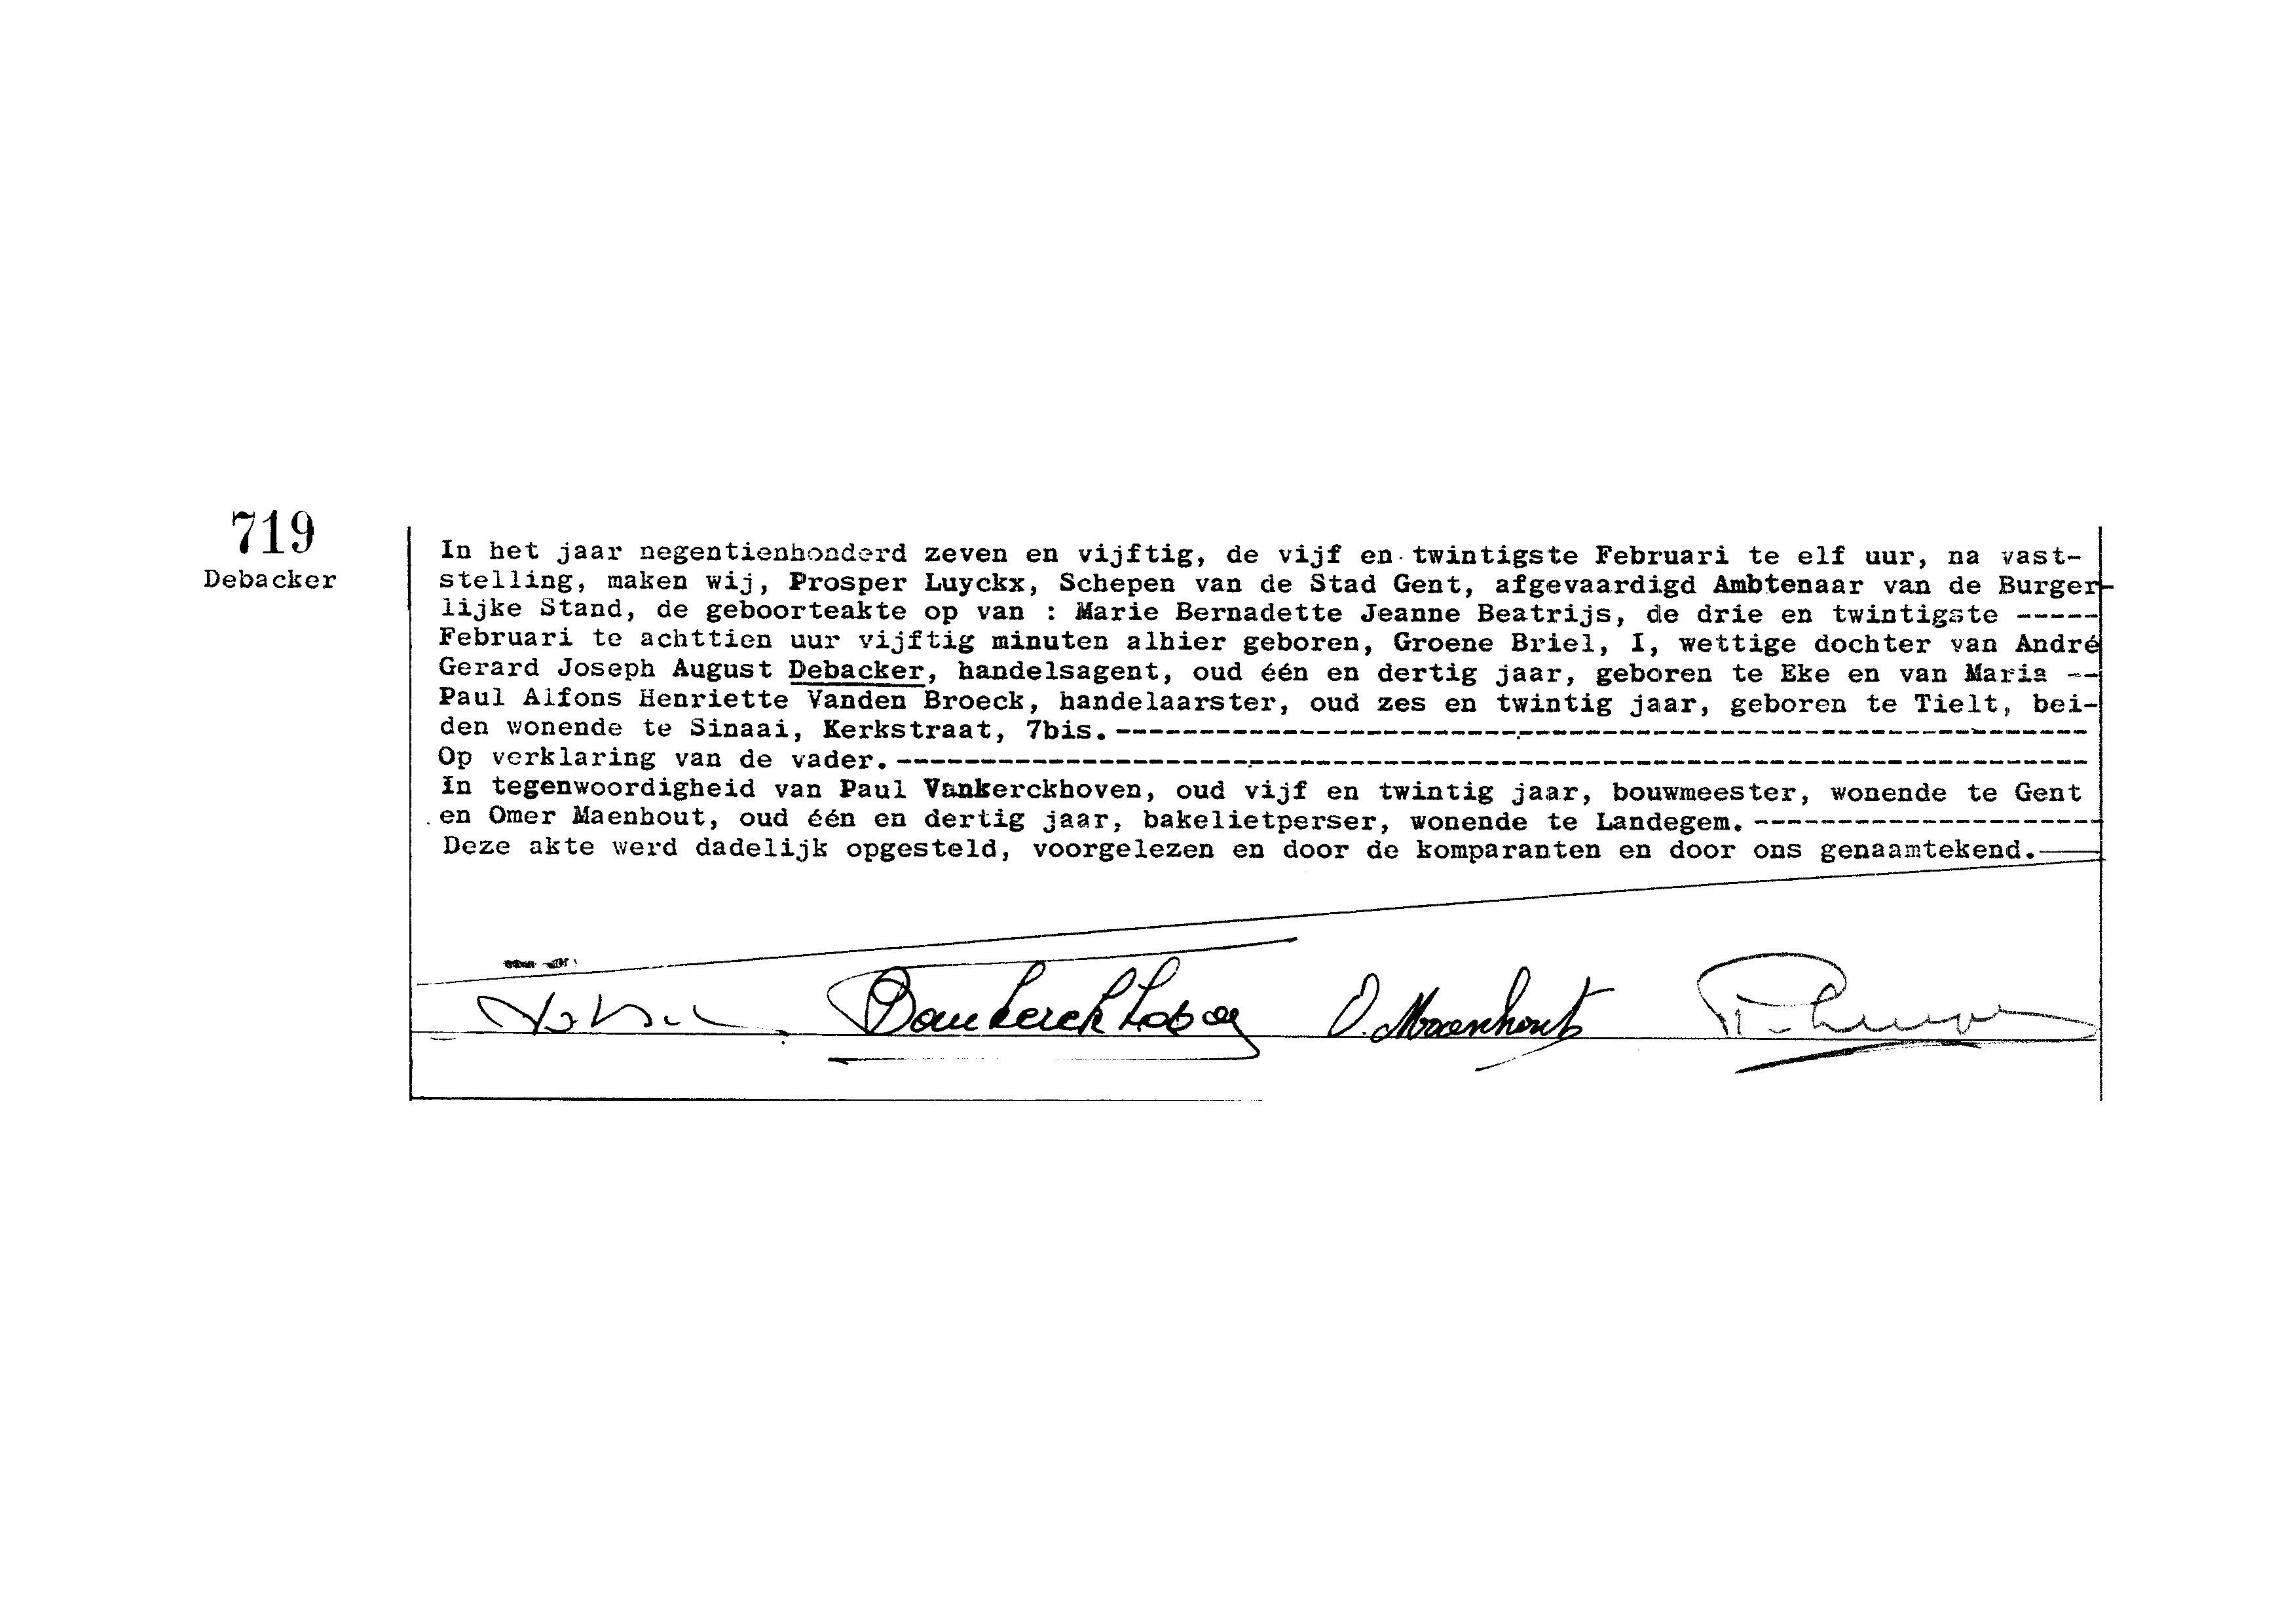 719
Debacker
In het jaar negentienhonderd zeven en vijftig, de vijf en twintigste Februari te elf uur, na vast-
stelling, maken wij, Prosper Luyckx, Schepen van de Stad Gent, afgevaardigd Ambtenaar van de Burger-
lijke Stand, de geboorteakte op van : Marie Bernadette Jeanne Beatrijs, de drie en twintigste -----
Februari te achttien uur vijftig minuten alhier geboren, Groene Briel, I, wettige dochter van André
Gerard Joseph August Debacker, handelsagent, oud één en dertig jaar, geboren te Eke en van Maria --
Paul Alfons Henriette Vanden Broeck, handelaarster, oud zes en twintig jaar, geboren te Tielt, bei-
den wonende te Sinaai, Kerkstraat, 7bis.----------------------------------------------------------
Op verklaring van de vader.-----------------------------------------------------------------------
In tegenwoordigheid van Paul Vankerckhoven, oud vijf en twintig jaar, bouwmeester, wonende te Gent
en Omer Maenhout, oud één en dertig jaar, bakelietperser, wonende te Landegem.---------------------
Deze akte werd dadelijk opgesteld, voorgelezen en door de komparanten en door ons genaamtekend.
O. Maenhout